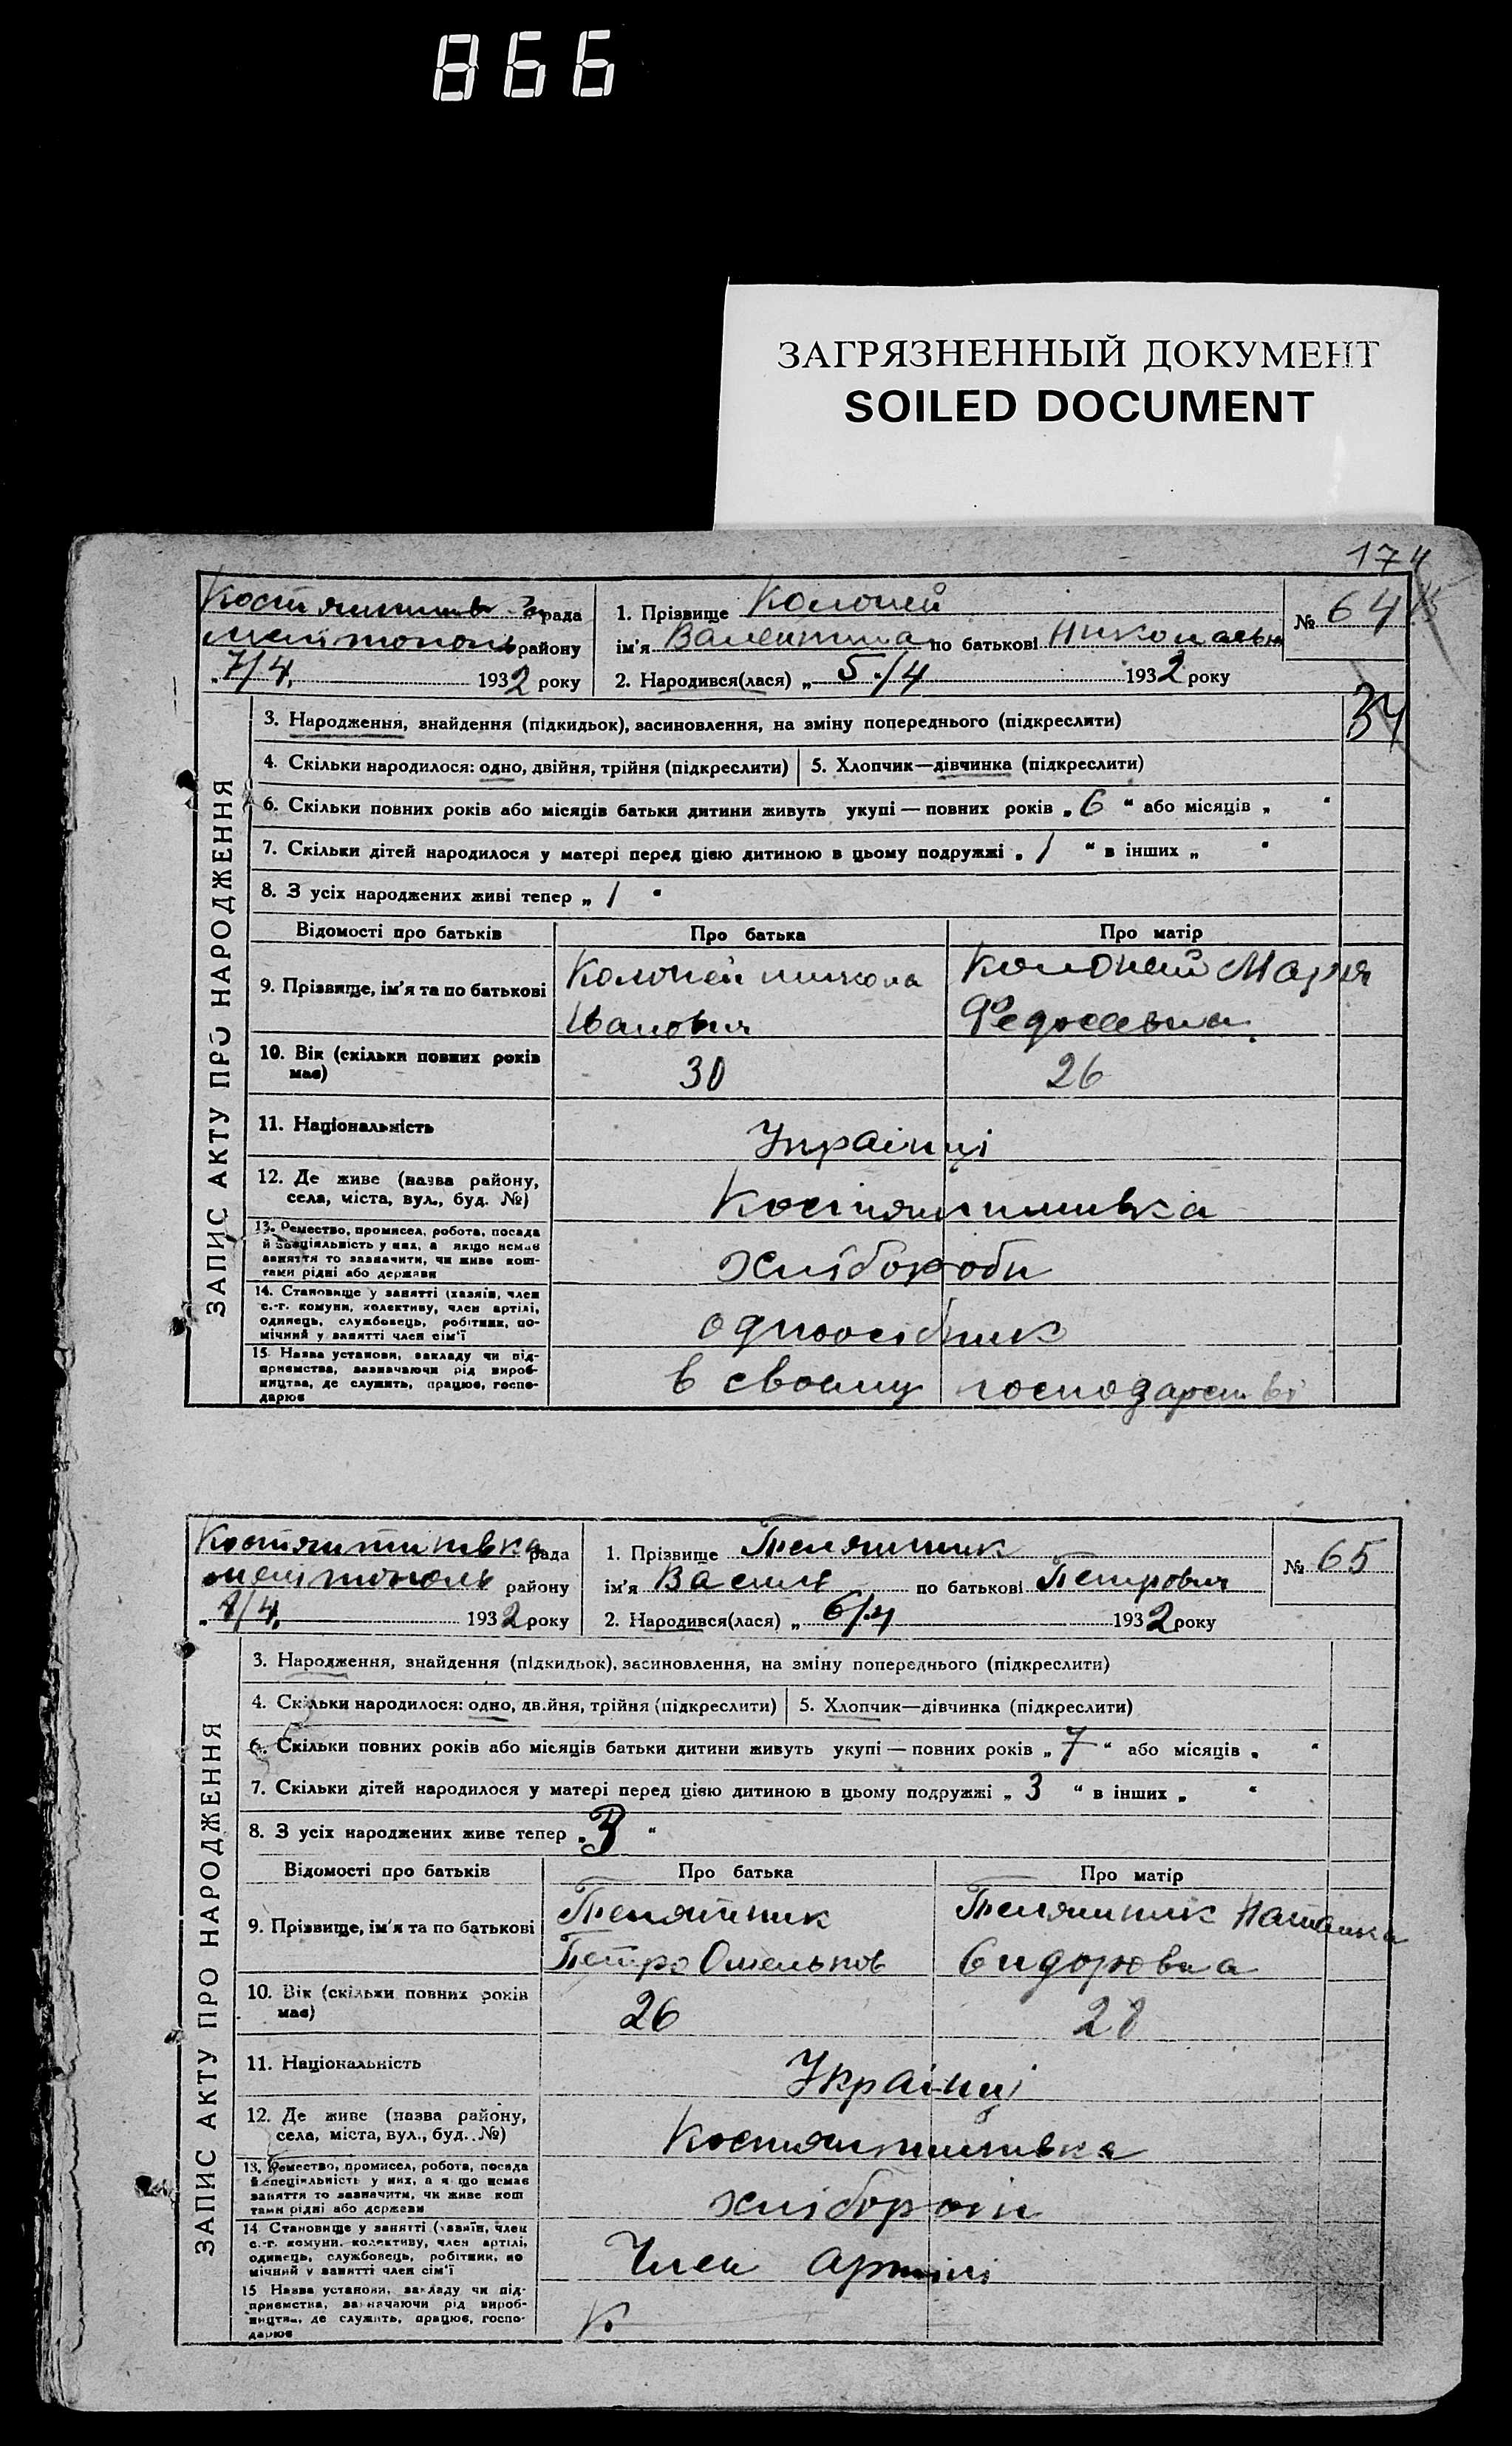 866
ЗАГРЯЗНЕННЫЙ ДОКУМЕНТ
SOILED DOCUMENT
174
рада
району
7/4 1932 року
1. Прізвище Колопей
ім'я Валентина по батькові Николаевн
2. Народився(лася) „ 5/4 1932 року
№ 64
34
ЗАПИС АКТУ ПРО НАРОДЖЕННЯ
3. Народження, знайдення (підкидьок), засиновлення, на зміну попереднього (підкреслити)
4. Скільки народилося: одно, двійня, трійня (підкреслити) 5. Хлопчик—дівчинка (підкреслити)
6. Скільки повних років або місяців батьки дитини живуть укупі — повних років „ 6 “ або місяців „ “
7. Скільки дітей народилося у матері перед цією дитиною в цьому подружжі „ 1 “ в інших „ “
8. З усіх народжених живі тепер „ 1 “
Відомості про батьків Про батька Про матір
9. Прізвище, ім'я та по батькові
Колопей Никола
Іванович
Колопей Марія
10. Вік (скільки повних років
має)
30 26
11. Національність
Українці
12. Де живе (назва району,
села, міста, вул., буд. №)
Костянтинівка
13. Ремество, промисел, робота, посада
й спеціяльність у них, а якщо немає
заняття то зазначити, чи живе кош-
тами рідні або держави
хлібороби
14. Становище у занятті (хазяїн, член
с.-г. комуни, колективу, член артілі,
одинець, службовець, робітник, по-
мічний у занятті член сім'ї
одноосібник
15. Назва установи, закладу чи під-
приємства, зазначаючи рід вироб-
ництва, де служить, працює, госпо-
дарює
в своему господарстві
Костянтинівка рада
Мелітополь району
8/4 1932 року
1. Прізвище Телятник
ім'я Василь по батькові Петрович
2. Народився(лася) „ 6/4 1932 року
№ 65
ЗАПИС АКТУ ПРО НАРОДЖЕННЯ
3. Народження, знайдення (підкидьок), засиновлення, на зміну попереднього (підкреслити)
4. Скільки народилося: одно, двійня, трійня (підкреслити) 5. Хлопчик—дівчинка (підкреслити)
6. Скільки повних років або місяців батьки дитини живуть укупі — повних років „ 7 “ або місяців „ “
7. Скільки дітей народилося у матері перед цією дитиною в цьому подружжі „ 3 “ в інших „ “
8. З усіх народжених живе тепер „ 3 “
Відомості про батьків Про батька Про матір
9. Прізвище, ім'я та по батькові
Телятник
Петро Омельков
Телятник Наталка
Сидоровна
10. Вік (скільки повних років
має)
26 28
11. Національність
Українці
12. Де живе (назва району,
села, міста, вул., буд. №)
Костянтинівка
13. Ремество, промисел, робота, посада
й спеціяльність у них, а якщо немає
заняття то зазначити, чи живе кош
тами рідні або держави
14. Становище у занятті (хазяїн, член
с.-г. комуни, колективу, член артілі,
одинець, службовець, робітник, по
мічний у занятті член сім'ї
Член артілі
15 Назва установи, закладу чи під-
приємства, зазначаючи рід вироб-
ництва, де служить, працює, госпо-
дарює